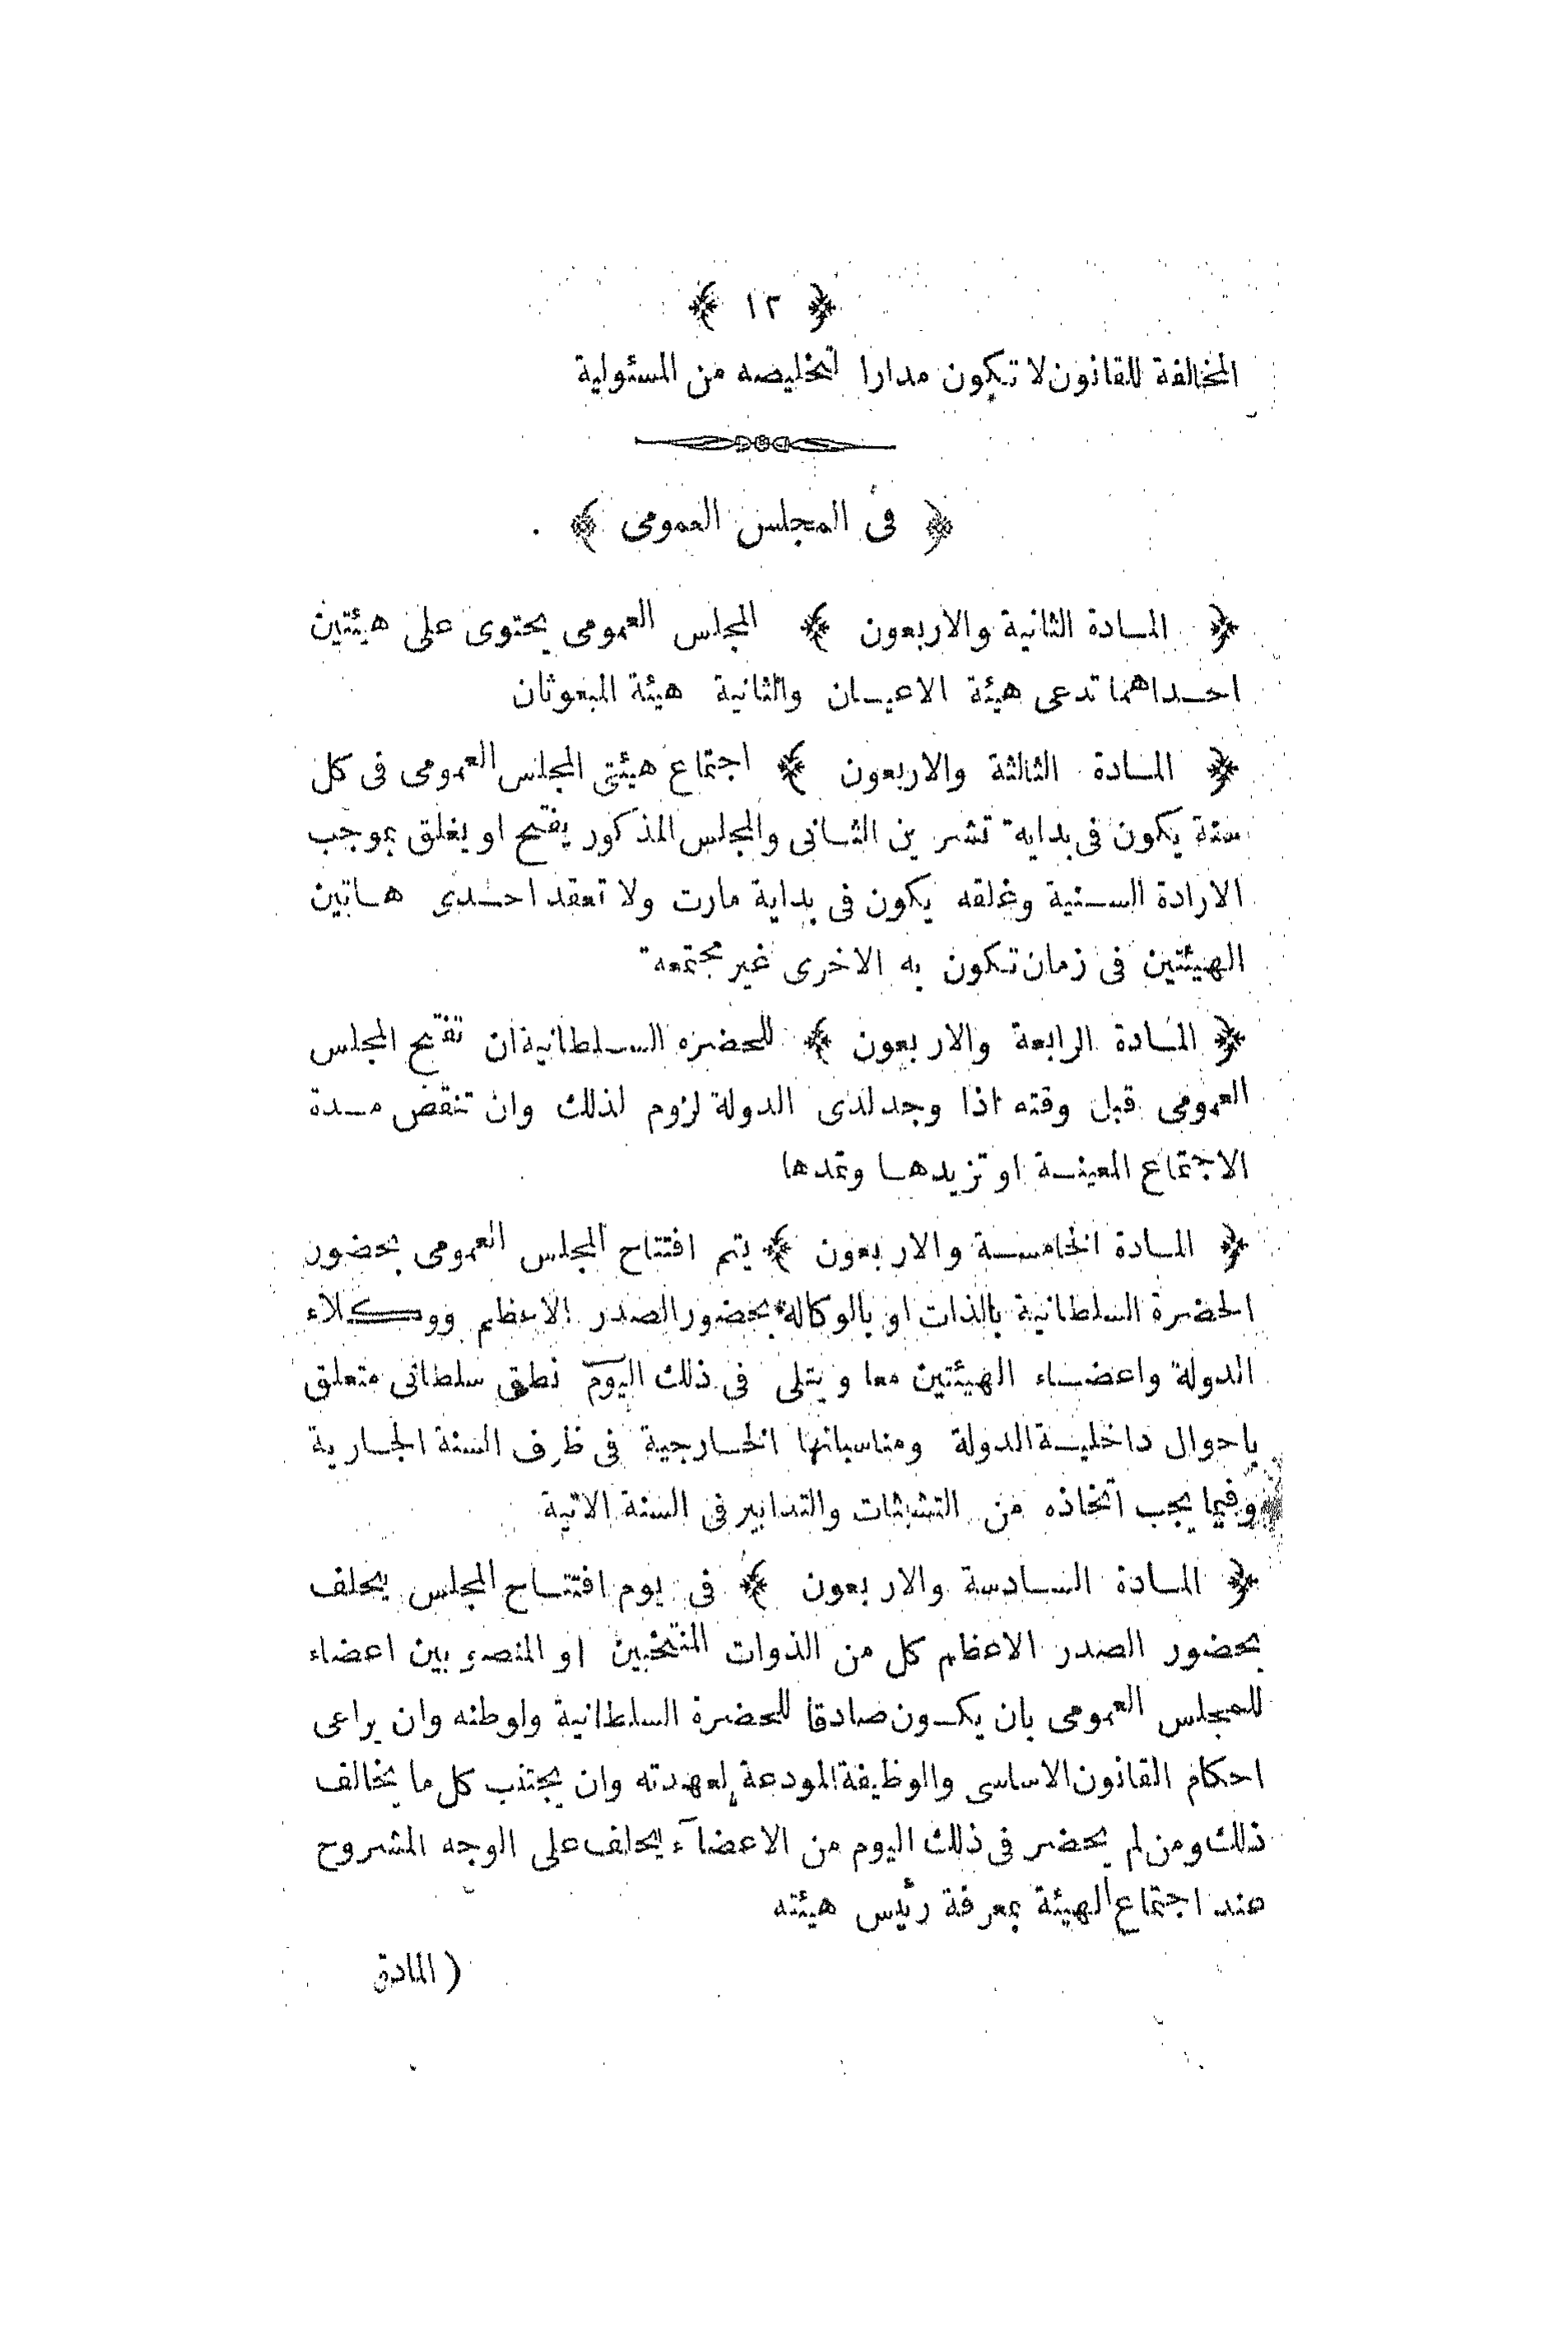 ﴿ ١٢ ﴾
المخالفة للقانون لا تكون مدارا لتخليصه من المسئولية
﴿ فى المجلس العمومى ﴾
﴿ المادة الثانية والاربعون ﴾ المجلس العمومى يحتوى على هيئتين
احداهما تدعى هيئة الاعيان والثانية هيئة المبعوثان
﴿ المادة الثالثة والاربعون ﴾ اجتماع هيئتى المجلس العمومى فى كل
سنة يكون فى بداية تشرين الثانى والمجلس المذكور يفتح او يغلق بموجب
الارادة السنية وغلقه يكون فى بداية مارت ولا تعقد احدى هاتين
الهيئتين فى زمان تكون به الاخرى غير مجتمعة
﴿ المادة الرابعة والاربعون ﴾ للحضره السلطانية ان تفتح المجلس
العمومى قبل وقته اذا وجد لدى الدولة لزوم لذلك وان تنقص مدة
الاجتماع المعينة او تزيدها وتمدها
﴿ المادة الخامسة والاربعون ﴾ يتم افتتاح المجلس العمومى بحضور
الحضرة السلطانية بالذات او بالوكالة بحضور الصدر الاعظم ووكلاء
الدولة واعضاء الهيئتين معا ويتلى فى ذلك اليوم نطق سلطانى متعلق
باحوال داخلية الدولة ومناسباتها الخارجية فى ظرف السنة الجارية
وفيما يجب اتخاذه من التشبثات والتدابير فى السنة الاتية
﴿ المادة السادسة والاربعون ﴾ فى يوم افتتاح المجلس يحلف
بحضور الصدر الاعظم كل من الذوات المنتخبين او المنصوبين اعضاء
للمجلس العمومى بان يكون صادقا للحضرة السلطانية ولوطنه وان يراعى
احكام القانون الاساسى والوظيفة المودعة لعهدته وان يجتنب كل ما يخالف
ذلك ومن لم يحضر فى ذلك اليوم من الاعضآء يحلف على الوجه المشروح
عند اجتماع الهيئة بمعرفة رئيس هيئته
( المادة